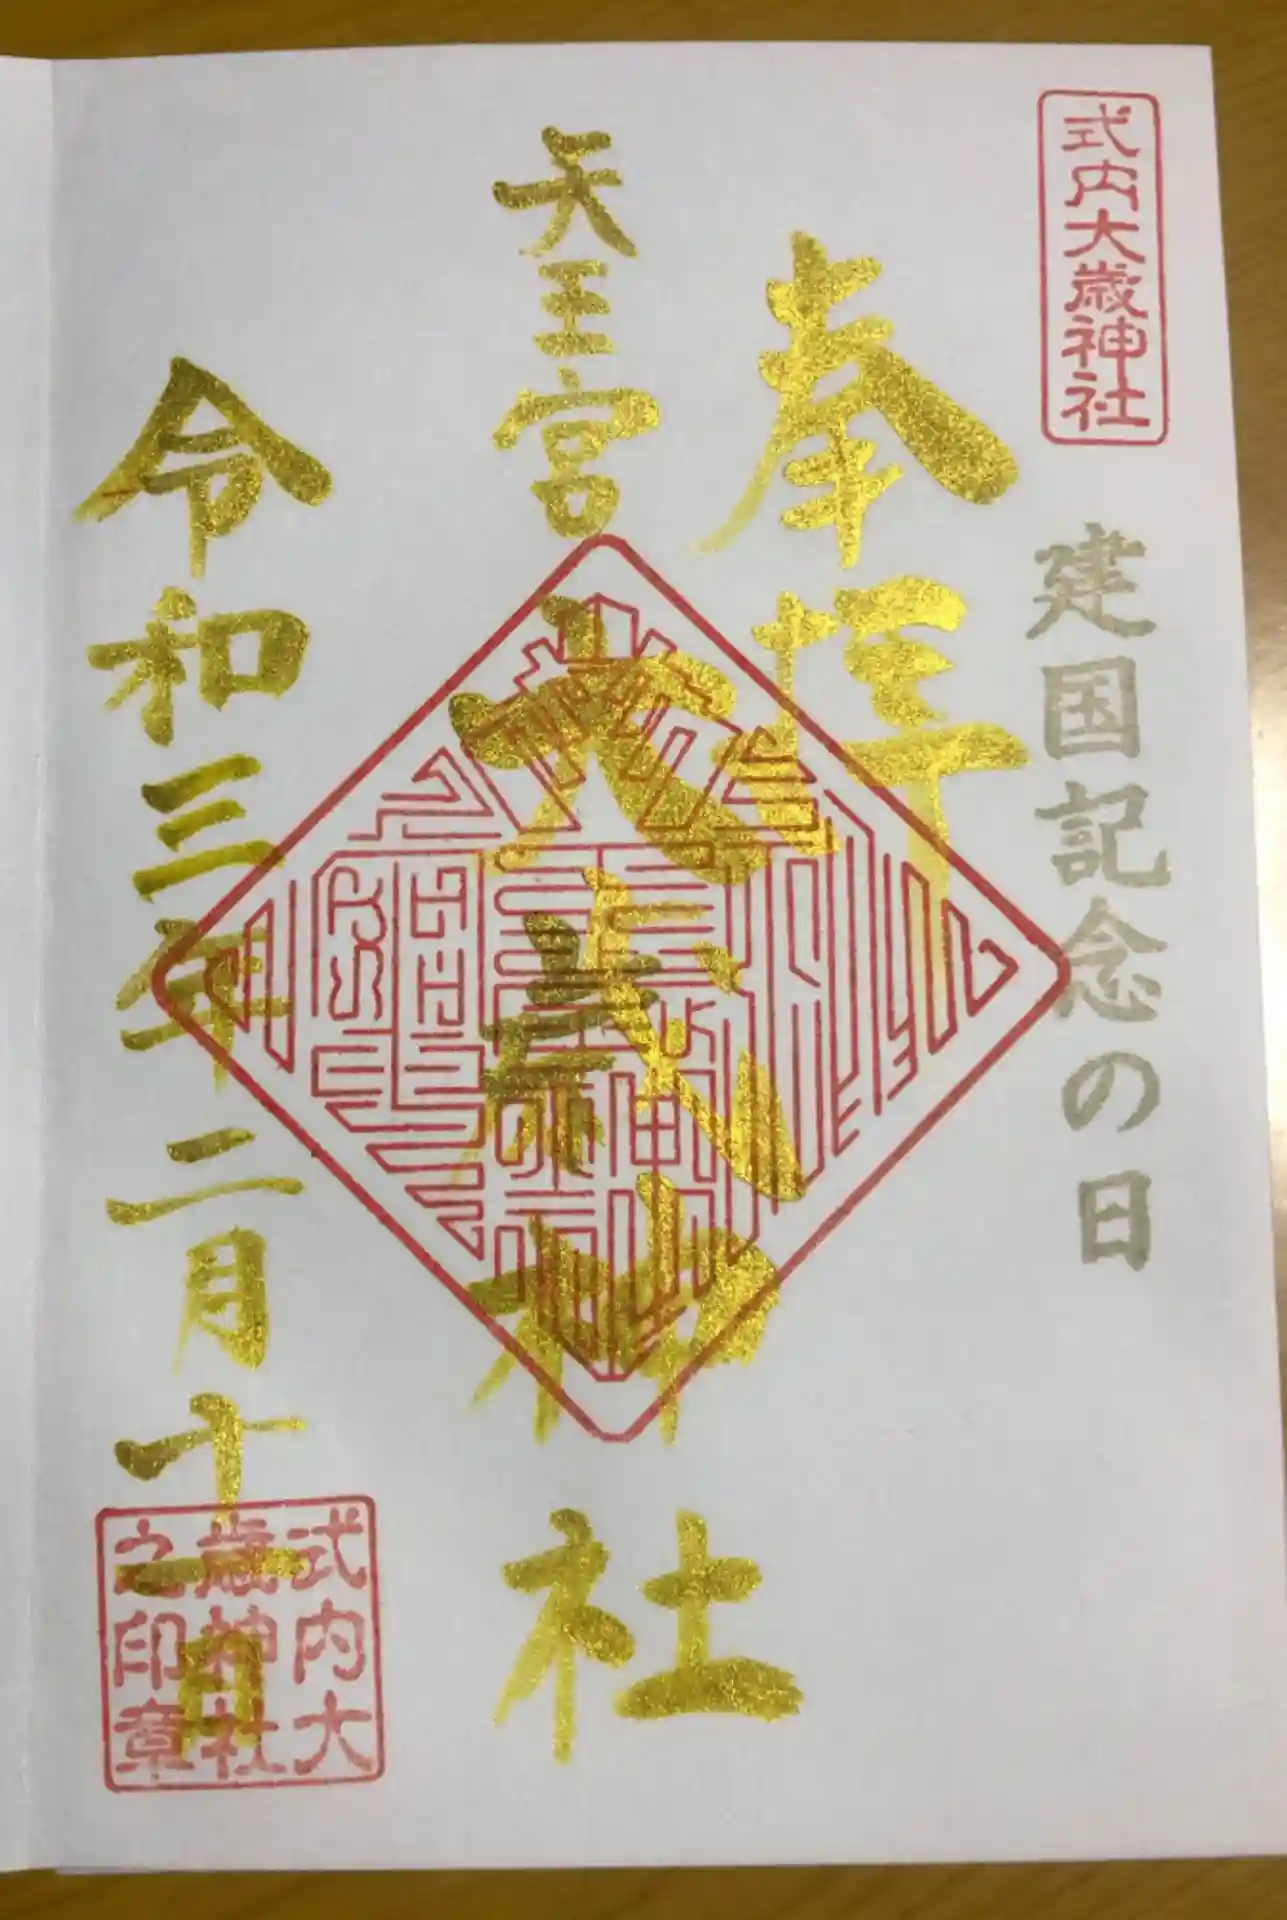 式内大歳神社
建国記念の日
奉拝
天王宮
大歳神社
令和三年二月十一日
式内大
歳神社
之印章